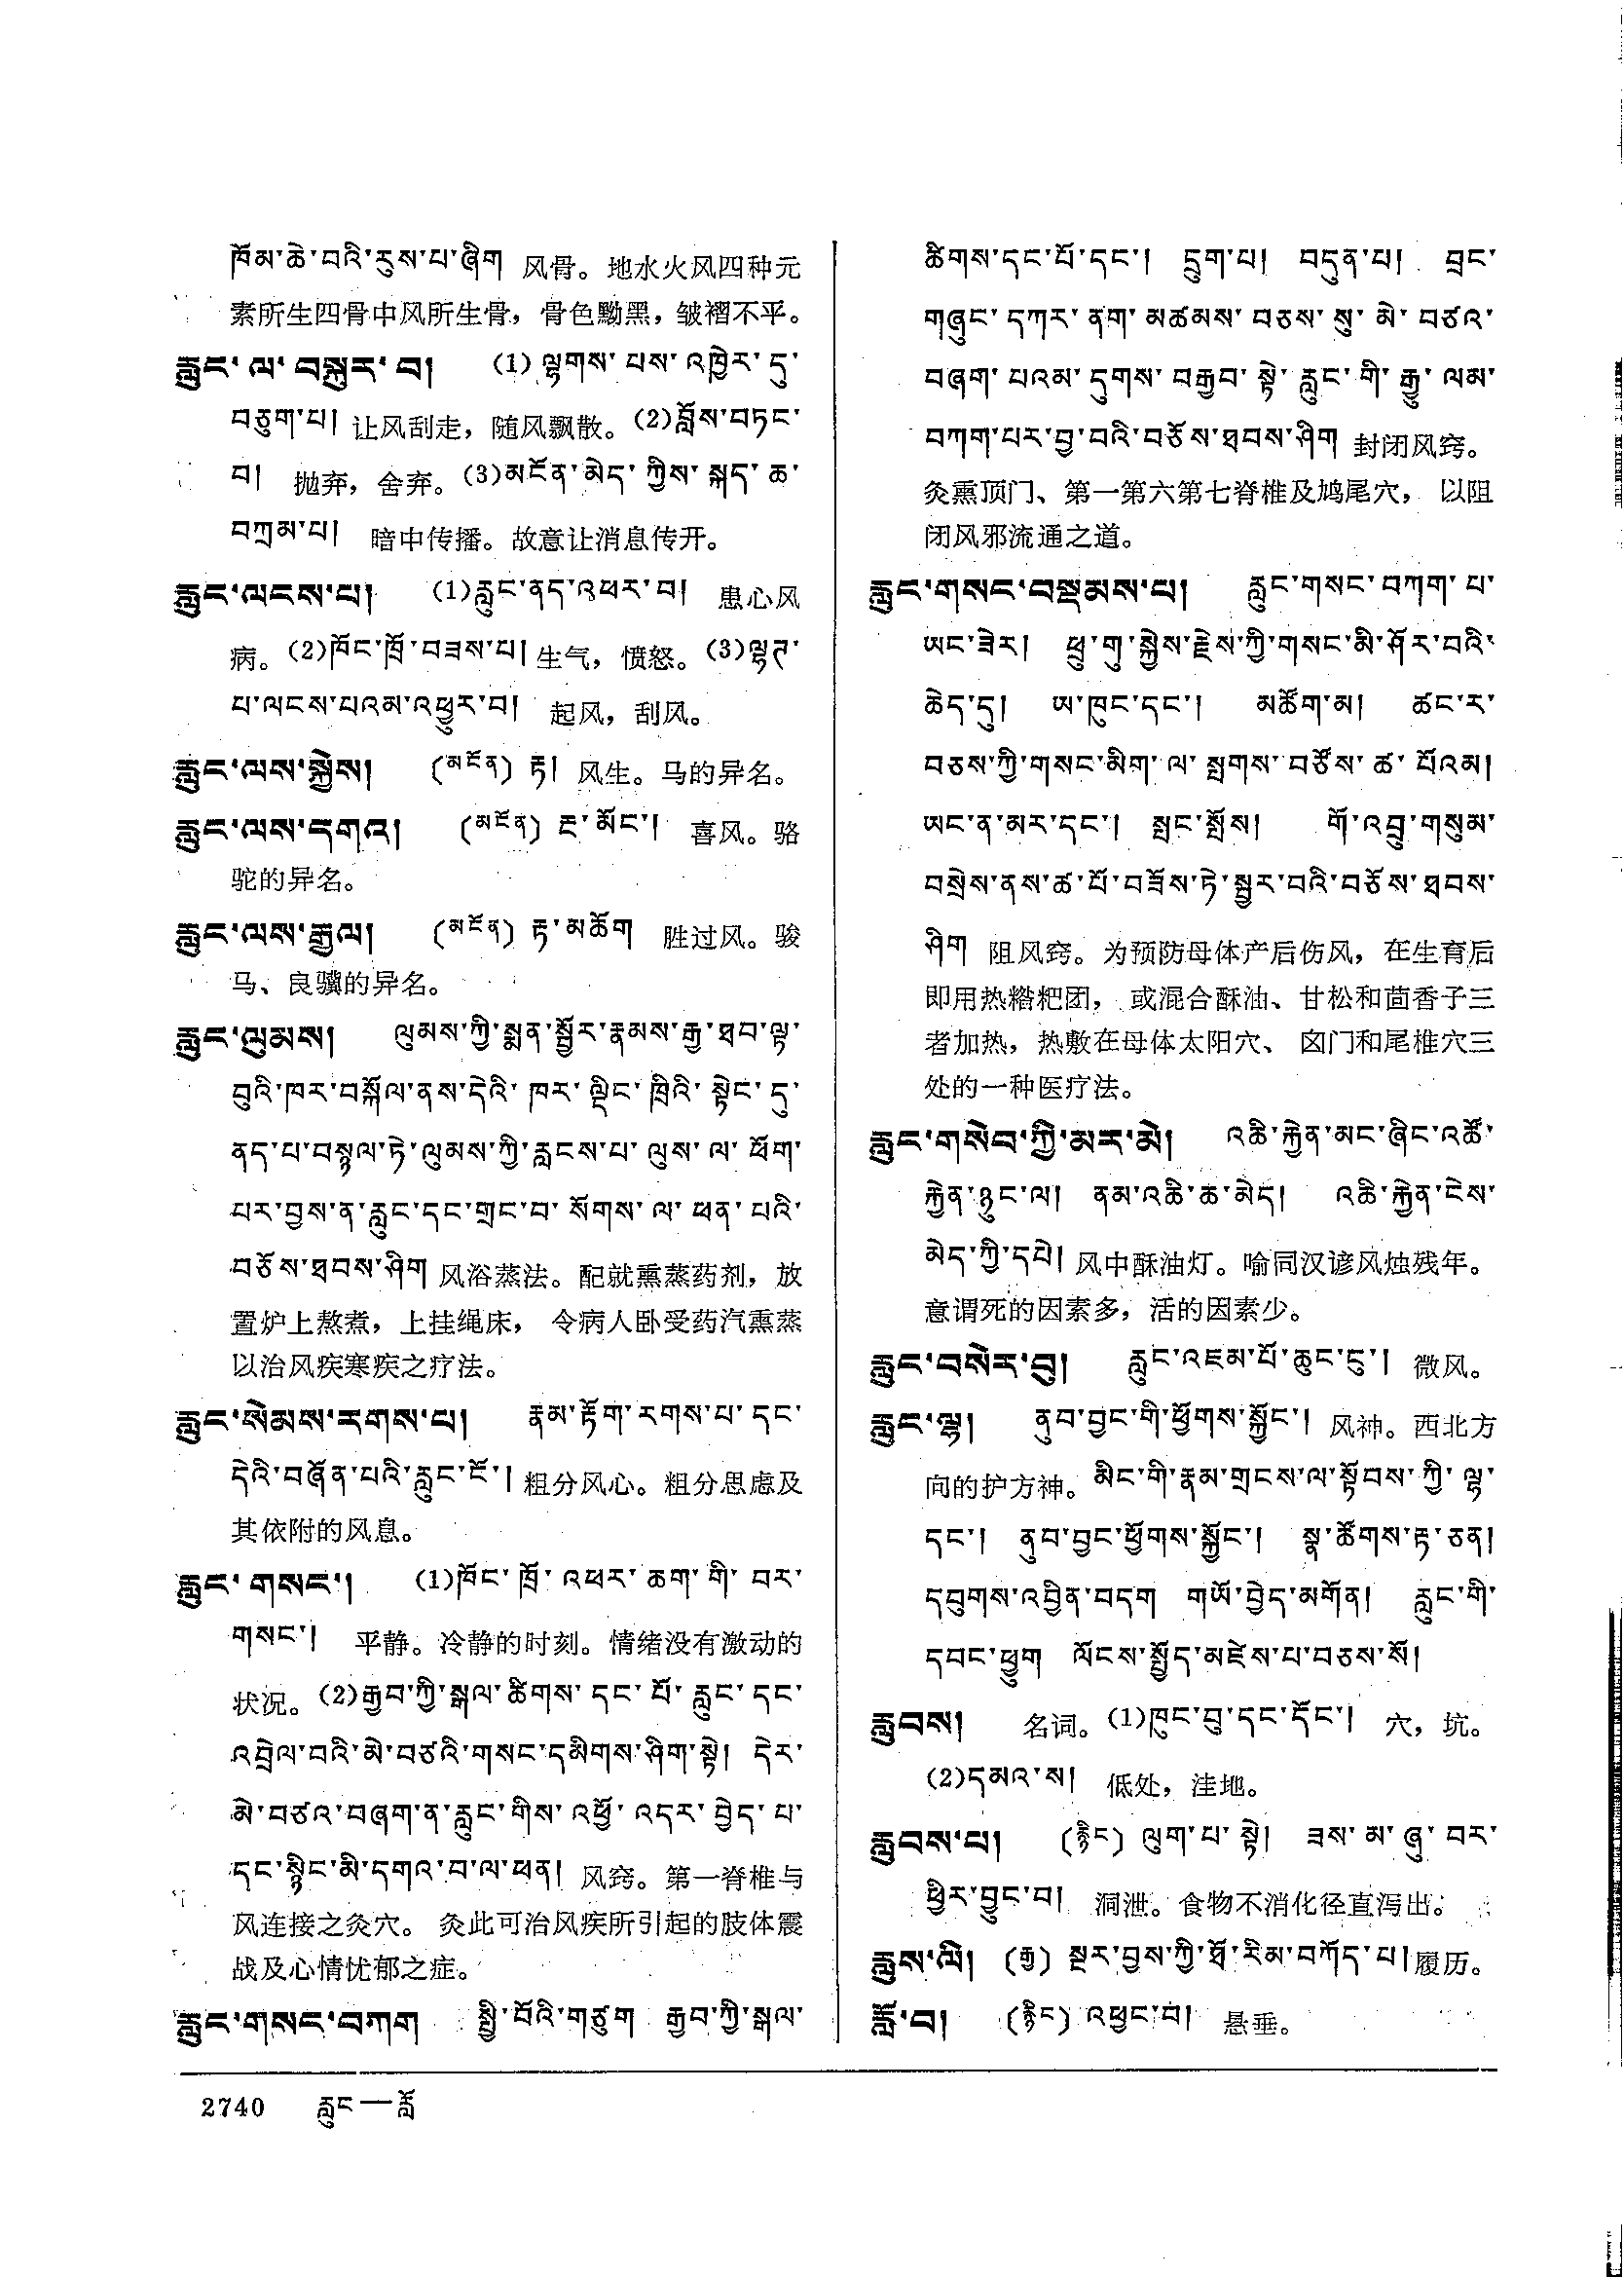 ཁོམ་ཆེ་བའི་རུས་པ་ཞིག 风骨。地水火风四种元
素所生四骨中风所生骨，骨色黝黑，皱褶不平。
རླུང་ལ་བསྐུར་བ། (1) ལྷགས་པས་འཁྱེར་དུ་
བཅུག་པ། 让风刮走，随风飘散。(2)བློས་བཏང་
བ། 抛弃，舍弃。(3)མངོན་མེད་ཀྱིས་སྐད་ཆ་
བཀྲམ་པ། 暗中传播。故意让消息传开。
རླུང་ལངས་པ། (1)རླུང་ནད་འཕར་བ། 患心风
病。(2)ཁོང་ཁྲོ་བཟས་པ། 生气，愤怒。(3)ལྷཊ་
པ་ལངས་པའམ་འཕྱུར་བ། 起风，刮风。
རླུང་ལས་སྐྱེས། (མངོན) རྟ། 风生。马的异名。
རླུང་ལས་དགའ། (མངོན) རྔ་མོང་། 喜风。骆
驼的异名。
རླུང་ལས་རྒྱལ། (མངོན) རྟ་མཆོག 胜过风。骏
马、良骥的异名。
རླུང་ལུམས། ལུམས་ཀྱི་སྨན་སྦྱོར་རྣམས་རྒྱ་ཐབ་ལྟ་
བུའི་ཁར་བསྐོལ་ནས་དེའི་ཁར་ལྡིང་ཁྲིའི་སྟེང་དུ་
ནད་པ་བསྙལ་ཏེ་ལུམས་ཀྱི་རླངས་པ་ལུས་ལ་ཕོག་
པར་བྱས་ན་རླུང་དང་གྲང་བ་སོགས་ལ་ཕན་པའི་
བཅོས་ཐབས་ཤིག 风浴蒸法。配就熏蒸药剂，放
置炉上熬煮，上挂绳床，令病人卧受药汽熏蒸
以治风疾寒疾之疗法。
རླུང་སེམས་རགས་པ། རྣམ་རྟོག་རགས་པ་དང་
དེའི་བཞོན་པའི་རླུང་ངོ་། 粗分风心。粗分思虑及
其依附的风息。
རླུང་གསང་། (1)ཁོང་ཁྲོ་འཕར་ཆག་གི་བར་
གསང་། 平静。冷静的时刻。情绪没有激动的
状况。(2)རྒྱབ་ཀྱི་སྒལ་ཚིགས་དང་པོ་རླུང་དང་
འབྲེལ་བའི་མེ་བཙའི་གསང་དམིགས་ཤིག་སྟེ། དེར་
མེ་བཙའ་བཞག་ན་རླུང་གིས་འཕྱོ་འདར་བྱེད་པ་
དང་སྙིང་མི་དགའ་བ་ལ་ཕན། 风窍。第一脊椎与
风连接之灸穴。灸此可治风疾所引起的肢体震
战及心情忧郁之症。
རླུང་གསང་བཀག སྤྱི་བོའི་གཙུག རྒྱབ་ཀྱི་སྒལ་
ཚིགས་དང་པོ་དང་། དྲུག་པ། བདུན་པ། བྲང་
གཞུང་དཀར་ནག་མཚམས་བཅས་སུ་མེ་བཙའ་
བཞག་པའམ་དུགས་བརྒྱབ་སྟེ་རླུང་གི་རྒྱུ་ལམ་
བཀག་པར་བྱ་བའི་བཅོས་ཐབས་ཤིག 封闭风窍。
灸熏顶门、第一第六第七脊椎及鸠尾穴，以阻
闭风邪流通之道。
རླུང་གསང་བསྡམས་པ། རླུང་གསང་བཀག་པ་
ཡང་ཟེར། ཕྲུ་གུ་སྐྱེས་རྗེས་ཀྱི་གསང་མི་ཤོར་བའི་
ཆེད་དུ། ཨ་ཁུང་དང་། མཚོག་མ། ཚང་ར་
བཅས་ཀྱི་གསང་མིག་ལ་སྤགས་བཙོས་ཚ་པོའམ།
ཡང་ན་མར་དང་། སྤང་སྤོས། གོ་འབྲུ་གསུམ་
བསྲེས་ནས་ཚ་པོ་བཟོས་ཏེ་སྦྱར་བའི་བཅོས་ཐབས་
ཤིག 阻风窍。为预防母体产后伤风，在生育后
即用热糌粑团，或混合酥油、甘松和茴香子三
者加热，热敷在母体太阳穴、囟门和尾椎穴三
处的一种医疗法。
རླུང་གསེབ་ཀྱི་མར་མེ། འཆི་རྐྱེན་མང་ཞིང་འཚོ་
རྐྱེན་ཉུང་ལ། ནམ་འཆི་ཆ་མེད། འཆི་རྐྱེན་ངེས་
མེད་ཀྱི་དཔེ། 风中酥油灯。喻同汉谚风烛残年。
意谓死的因素多，活的因素少。
རླུང་བསེར་བུ། རླུང་འཇམ་པོ་ཆུང་ངུ་། 微风。
རླུང་ལྷ། ནུབ་བྱང་གི་ཕྱོགས་སྐྱོང་། 风神。西北方
向的护方神。མིང་གི་རྣམ་གྲངས་ལ་སྟོབས་ཀྱི་ལྷ་
དང་། ནུབ་བྱང་ཕྱོགས་སྐྱོང་། སྣ་ཚོགས་རྟ་ཅན།
དབུགས་འབྱིན་བདག གཡོ་བྱེད་མགོན། རླུང་གི་
དབང་ཕྱུག ལོངས་སྤྱོད་མཛེས་པ་བཅས་སོ།
རླུབས། 名词。(1)ཁུང་བུ་དང་དོང་། 穴，坑。
(2)དམའ་ས། 低处，洼地。
རླུབས་པ། (རྙིང) ལུག་པ་སྟེ། ཟས་མ་ཞུ་བར་
ཕྱིར་བྱུང་བ། 洞泄。食物不消化径直泻出。
རླུས་ལི། (རྒྱ) སྔར་བྱས་ཀྱི་ཐོ་རིམ་བཀོད་པ། 履历。
རློ་བ། (རྙིང) འཕྱང་བ། 悬垂。
2740 རླུང—རློ